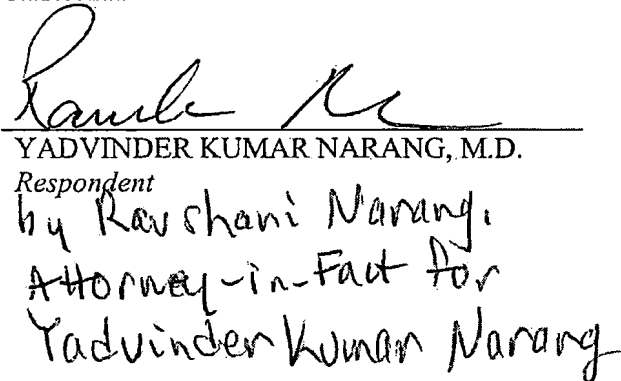 YADVINDER KUMAR NARANG, M.D.
Respondent
by Ravshani Narang,
Attorney-in-Fact for
Yadvinder Kumar Narang